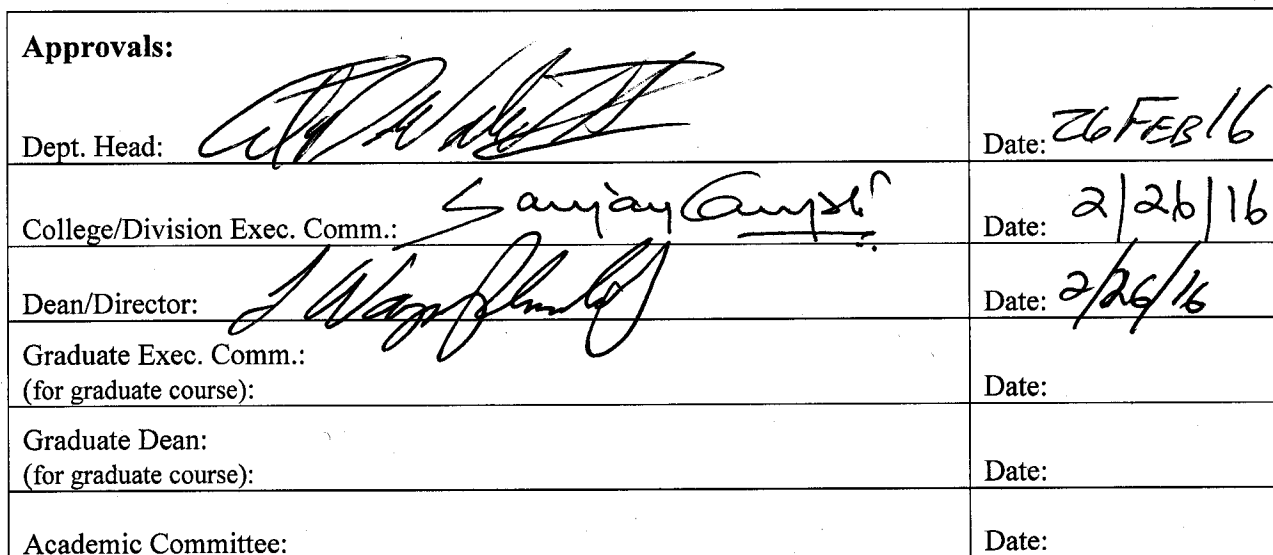 Approvals:
Dept. Head: Date: 26 FEB 16
College/Division Exec. Comm.: Sanjay Date: 2/26/16
Dean/Director: Date: 2/26/16
Graduate Exec. Comm.:
(for graduate course): Date:
Graduate Dean:
(for graduate course): Date:
Academic Committee: Date: